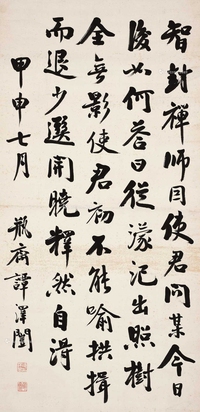 智封禪師因使君問某今日
後如何答曰從濛汜出照樹
全無影使君初不能喻拱揖
而退少選開曉釋然自得
甲申七月
瓶齋譚澤闓